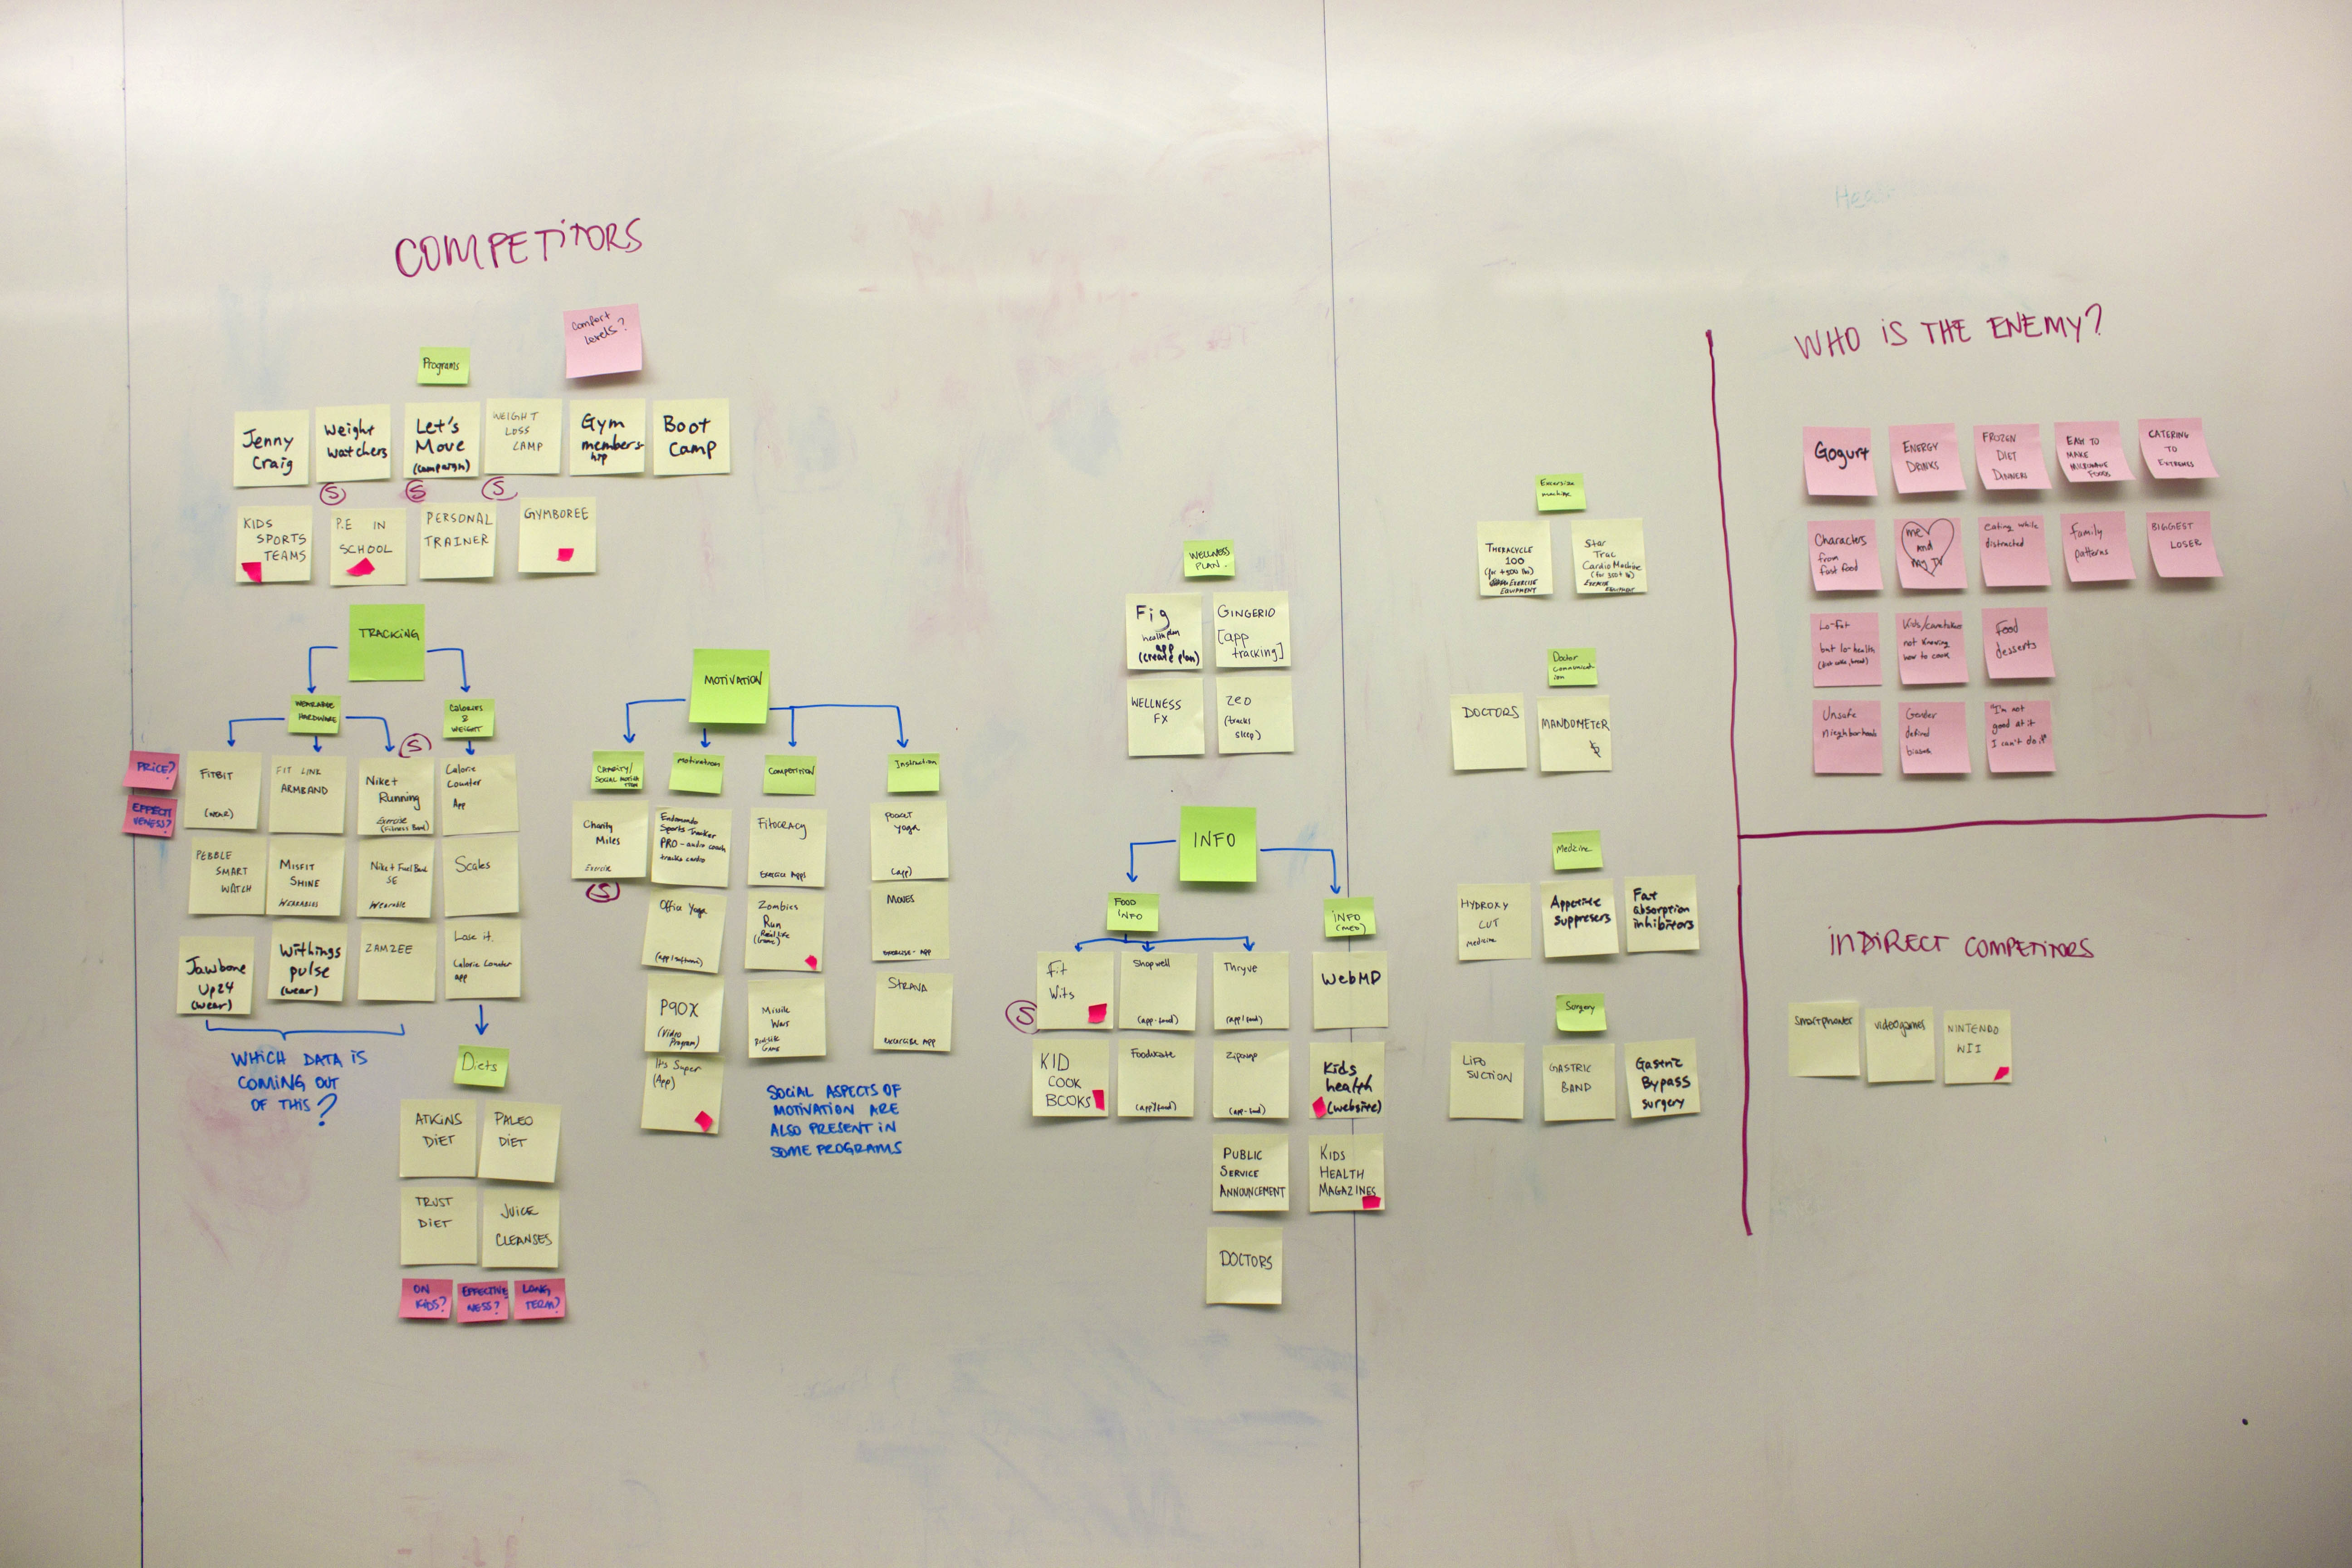 COMPETITORS
Comfort
levels?
Programs
Jenny
Craig
Weight
watchers
Let's
Move
(campaign)
WEIGHT
LOSS
CAMP
Gym
members-
hip
Boot
Camp
S
S
S
KIDS
SPORTS
TEAMS
P.E IN
SCHOOL
PERSONAL
TRAINER
GYMBOREE
TRACKING
WEARABLE
HARDWARE
CALORIES
&
WEIGHT
S
PRICE?
EFFECTI
VENESS?
FITBIT
(WEAR)
FIT LINK
ARMBAND
Nike+
Running
Exercise
(Fitness Band)
Calorie
Counter
App
PEBBLE
SMART
WATCH
MISFIT
SHINE
WEARABLES
Nike+ Fuel Band
SE
Wearable
Scales
Jawbone
Up24
(wear)
Withings
pulse
(wear)
ZAMZEE
Lose it.
Calorie Counter
app
WHICH DATA IS
COMING OUT
OF THIS?
Diets
ATKINS
DIET
PALEO
DIET
TRUST
DIET
JUICE
CLEANSES
ON
KIDS?
EFFECTIVE
NESS?
LONG
TERM?
MOTIVATION
CHARITY/
SOCIAL
Motivations
COMPETITION
Instruction
Charity
Miles
Exercise
S
Endomondo
Sports Tracker
PRO - audio coach
tracks cardio
Fitocracy
Exercise Apps
pocket
yoga
(app)
Office Yoga
(app/software)
Zombies
Run
Real life
(Game)
MOVES
EXERCISE - APP
P90X
(Video
Program)
Missile
Wars
GAME
STRAVA
exercise App
It's Super
(App)
SOCIAL ASPECTS OF
MOTIVATION ARE
ALSO PRESENT IN
SOME PROGRAMS
WELLNESS
PLAN.
Fig
health plan
app
(create plan)
GINGERIO
[app
tracking]
WELLNESS
FX
ZEO
(tracks
sleep)
INFO
FOOD
INFO
INFO
(MED)
Fit
Wits
S
Shopwell
(app-food)
Thryve
(app/food)
WebMD
KID
COOK
BOOKS
Fooducate
(app/food)
Zipongo
(app-food)
Kids
health
(website)
PUBLIC
SERVICE
ANNOUNCEMENT
KIDS
HEALTH
MAGAZINES
DOCTORS
Excersise
machine
THERACYCLE
100
(for +500 lbs)
EXERCISE
EQUIPMENT
Star
Trac
Cardio Machine
EXERCISE
EQUIPMENT
Doctor
Communicat
ion
DOCTORS
MANDOMETER
Medicine
HYDROXY
CUT
medicine
Appetite
suppresers
Fat
absorption
inhibitors
Surgery
LIPO
SUCTION
GASTRIC
BAND
Gastric
Bypass
surgery
WHO IS THE ENEMY?
Gogurt
ENERGY
DRINKS
FROZEN
DIET
DINNERS
EASY TO
MAKE
MICROWAVE
FOODS
CATERING
TO
EXTREMES
Characters
from
fast food
me
and
my TV
eating while
distracted
family
patterns
BIGGEST
LOSER
Lo-fat
but lo-health
Kids/caretakers
not knowing
how to cook
Food
desserts
Unsafe
nieghborhoods
Gender
defined
biases
"I'm not
good at it
I can't do it"
INDIRECT COMPETITORS
Smartphones
videogames
NINTENDO
WII